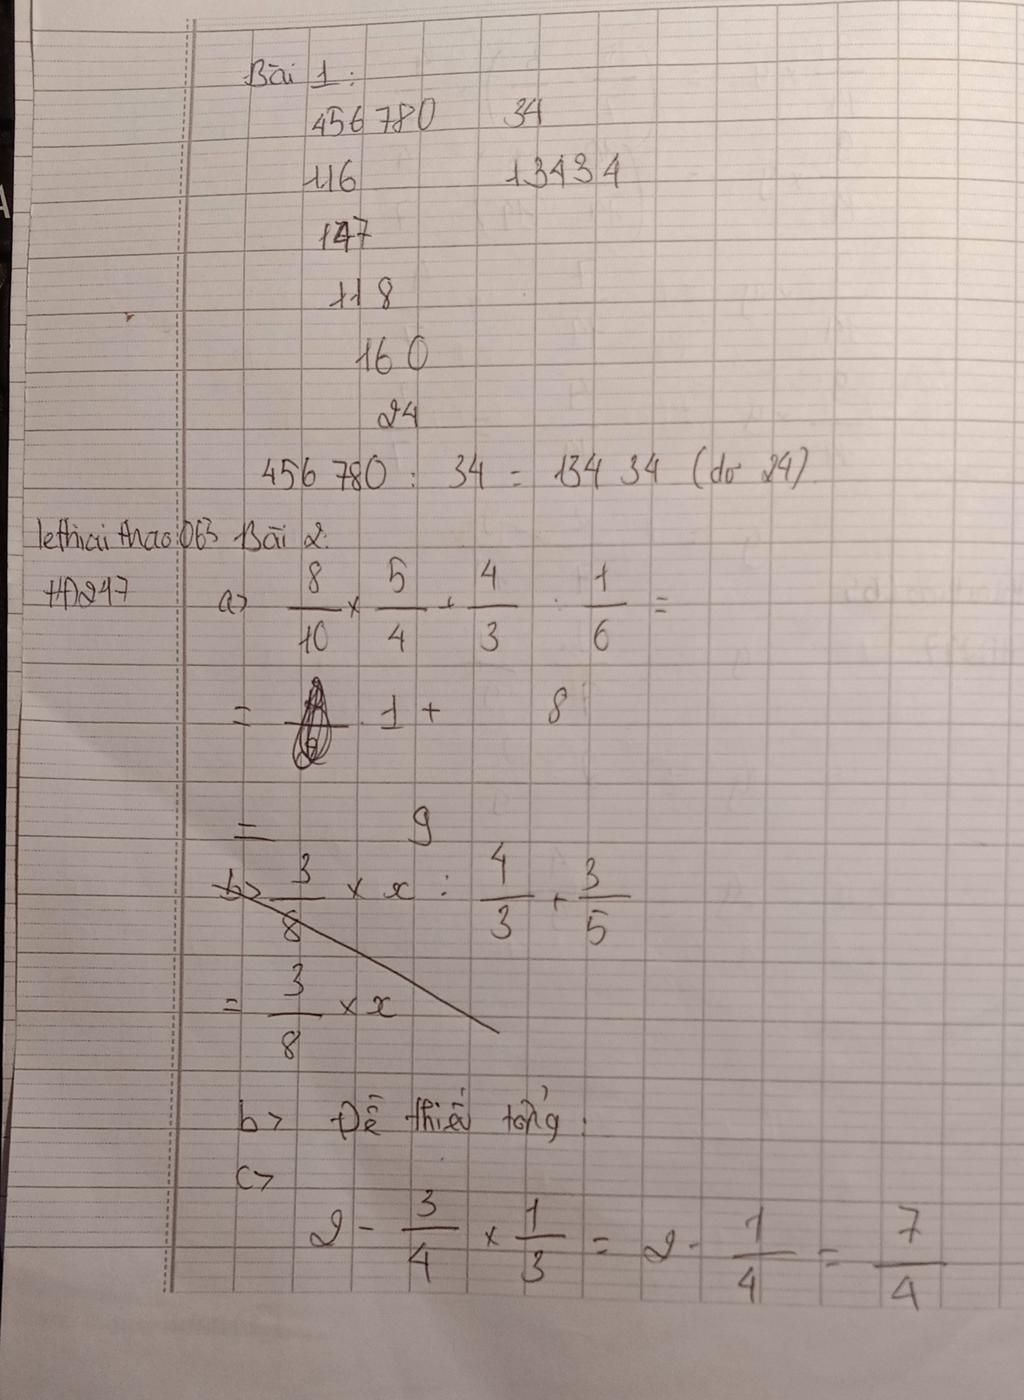 Bài 1:
456 780 34
116 13434
147
118
160
24
456 780 : 34 = 134 34 (dư 24)
lethicaithao063 Bài 2:
HD247
a> 8/10 × 5/4 + 4/3 : 1/6 =
= 1 + 8
= 9
b> 3/8 × x : 4/3 + 3/5
= 3/8 × x
b> Đề thiếu tổng.
c>
2 - 3/4 × 1/3 = 2 - 1/4 = 7/4